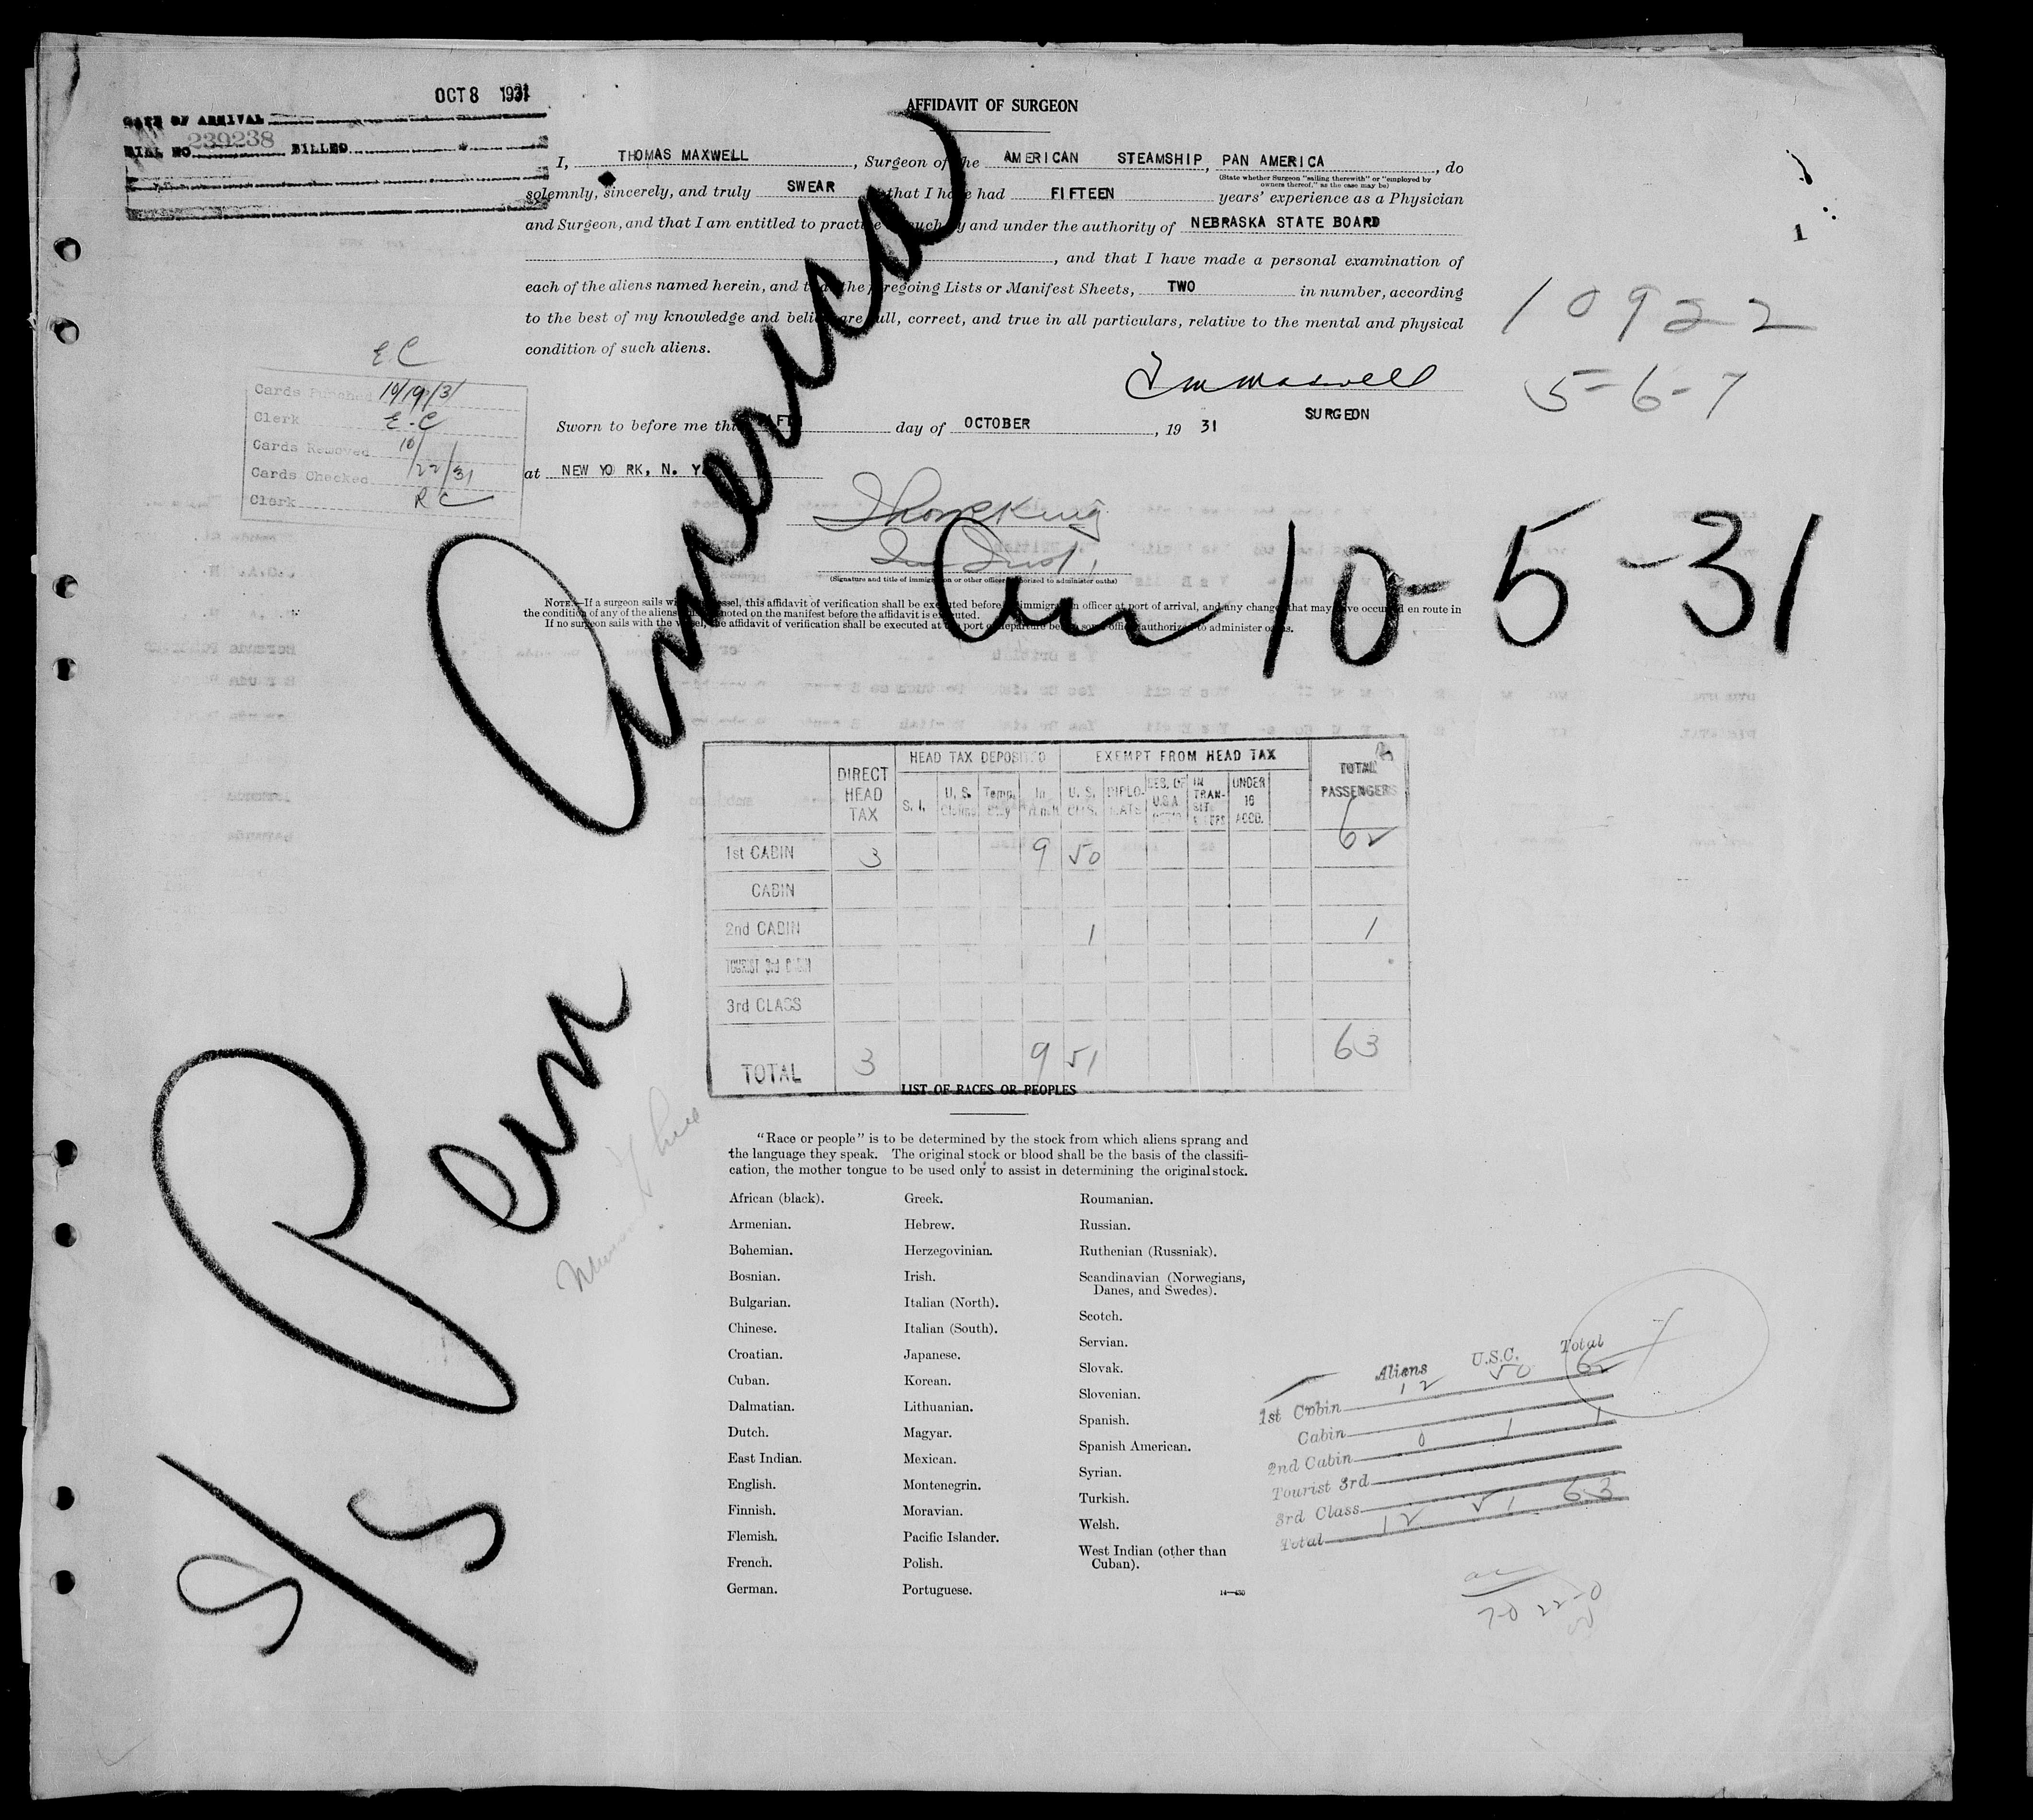 OCT 8 1931
DATE OF ARRIVAL
239238 BILLED
AFFIDAVIT OF SURGEON
I, THOMAS MAXWELL, Surgeon of the AMERICAN STEAMSHIP, PAN AMERICA, do
(State whether Surgeon "sailing therewith" or "employed by owners thereof," as the case may be)
solemnly, sincerely, and truly SWEAR that I have had FIFTEEN years' experience as a Physician
and Surgeon, and that I am entitled to practice as such by and under the authority of NEBRASKA STATE BOARD
, and that I have made a personal examination of
each of the aliens named herein, and that the foregoing Lists or Manifest Sheets, TWO in number, according
to the best of my knowledge and belief, are full, correct, and true in all particulars, relative to the mental and physical
condition of such aliens.
1
10922
5-6-7
T M Maxwell
SURGEON
Sworn to before me this day of OCTOBER, 19 31
at NEW YORK, N. Y.
(Signature and title of immigration or other officer authorized to administer oaths)
E C
Cards Punched 10/19/31
Clerk E.C
Cards Removed 10/
Cards Checked /22/31
Clerk R C
S/S Pan America
Arr 10-5-31
NOTE.—If a surgeon sails with the vessel, this affidavit of verification shall be executed before an immigration officer at port of arrival, and any changes that may have occurred en route in
the condition of any of the aliens shall be noted on the manifest before the affidavit is executed.
If no surgeon sails with the vessel, the affidavit of verification shall be executed at the port of departure before some officer authorized to administer oaths.
DIRECT HEAD TAX HEAD TAX DEPOSITED EXEMPT FROM HEAD TAX TOTAL PASSENGERS
S. I. U. S. Temp. In U. S. CITS. DIPLOMATS RES. OF U.S.A. IN TRANSIT UNDER 16 ACCD.
1st CABIN 3 9 50 62
CABIN
2nd CABIN 1 1
TOURIST 3rd CABIN
3rd CLASS
TOTAL 3 9 51 63
LIST OF RACES OR PEOPLES
"Race or people" is to be determined by the stock from which aliens sprang and
the language they speak. The original stock or blood shall be the basis of the classifi-
cation, the mother tongue to be used only to assist in determining the original stock.
African (black).
Armenian.
Bohemian.
Bosnian.
Bulgarian.
Chinese.
Croatian.
Cuban.
Dalmatian.
Dutch.
East Indian.
English.
Finnish.
Flemish.
French.
German.
Greek.
Hebrew.
Herzegovinian.
Irish.
Italian (North).
Italian (South).
Japanese.
Korean.
Lithuanian.
Magyar.
Mexican.
Montenegrin.
Moravian.
Pacific Islander.
Polish.
Portuguese.
Roumanian.
Russian.
Ruthenian (Russniak).
Scandinavian (Norwegians,
Danes, and Swedes).
Scotch.
Servian.
Slovak.
Slovenian.
Spanish.
Spanish American.
Syrian.
Turkish.
Welsh.
West Indian (other than
Cuban).
14—430
Aliens U.S.C. Total
1st Cabin 12 50 62
Cabin
2nd Cabin 0 1 1
Tourist 3rd
3rd Class
Total 12 51 63